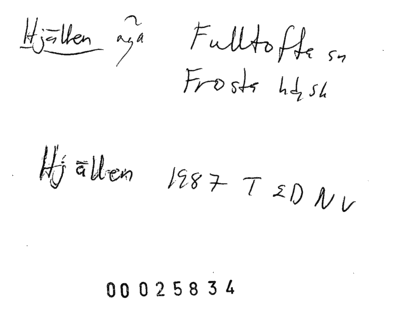 Hjällen ägä Fulltofta sn
Frosta hd sk
Hjällen 1987 T ED NV
00025834